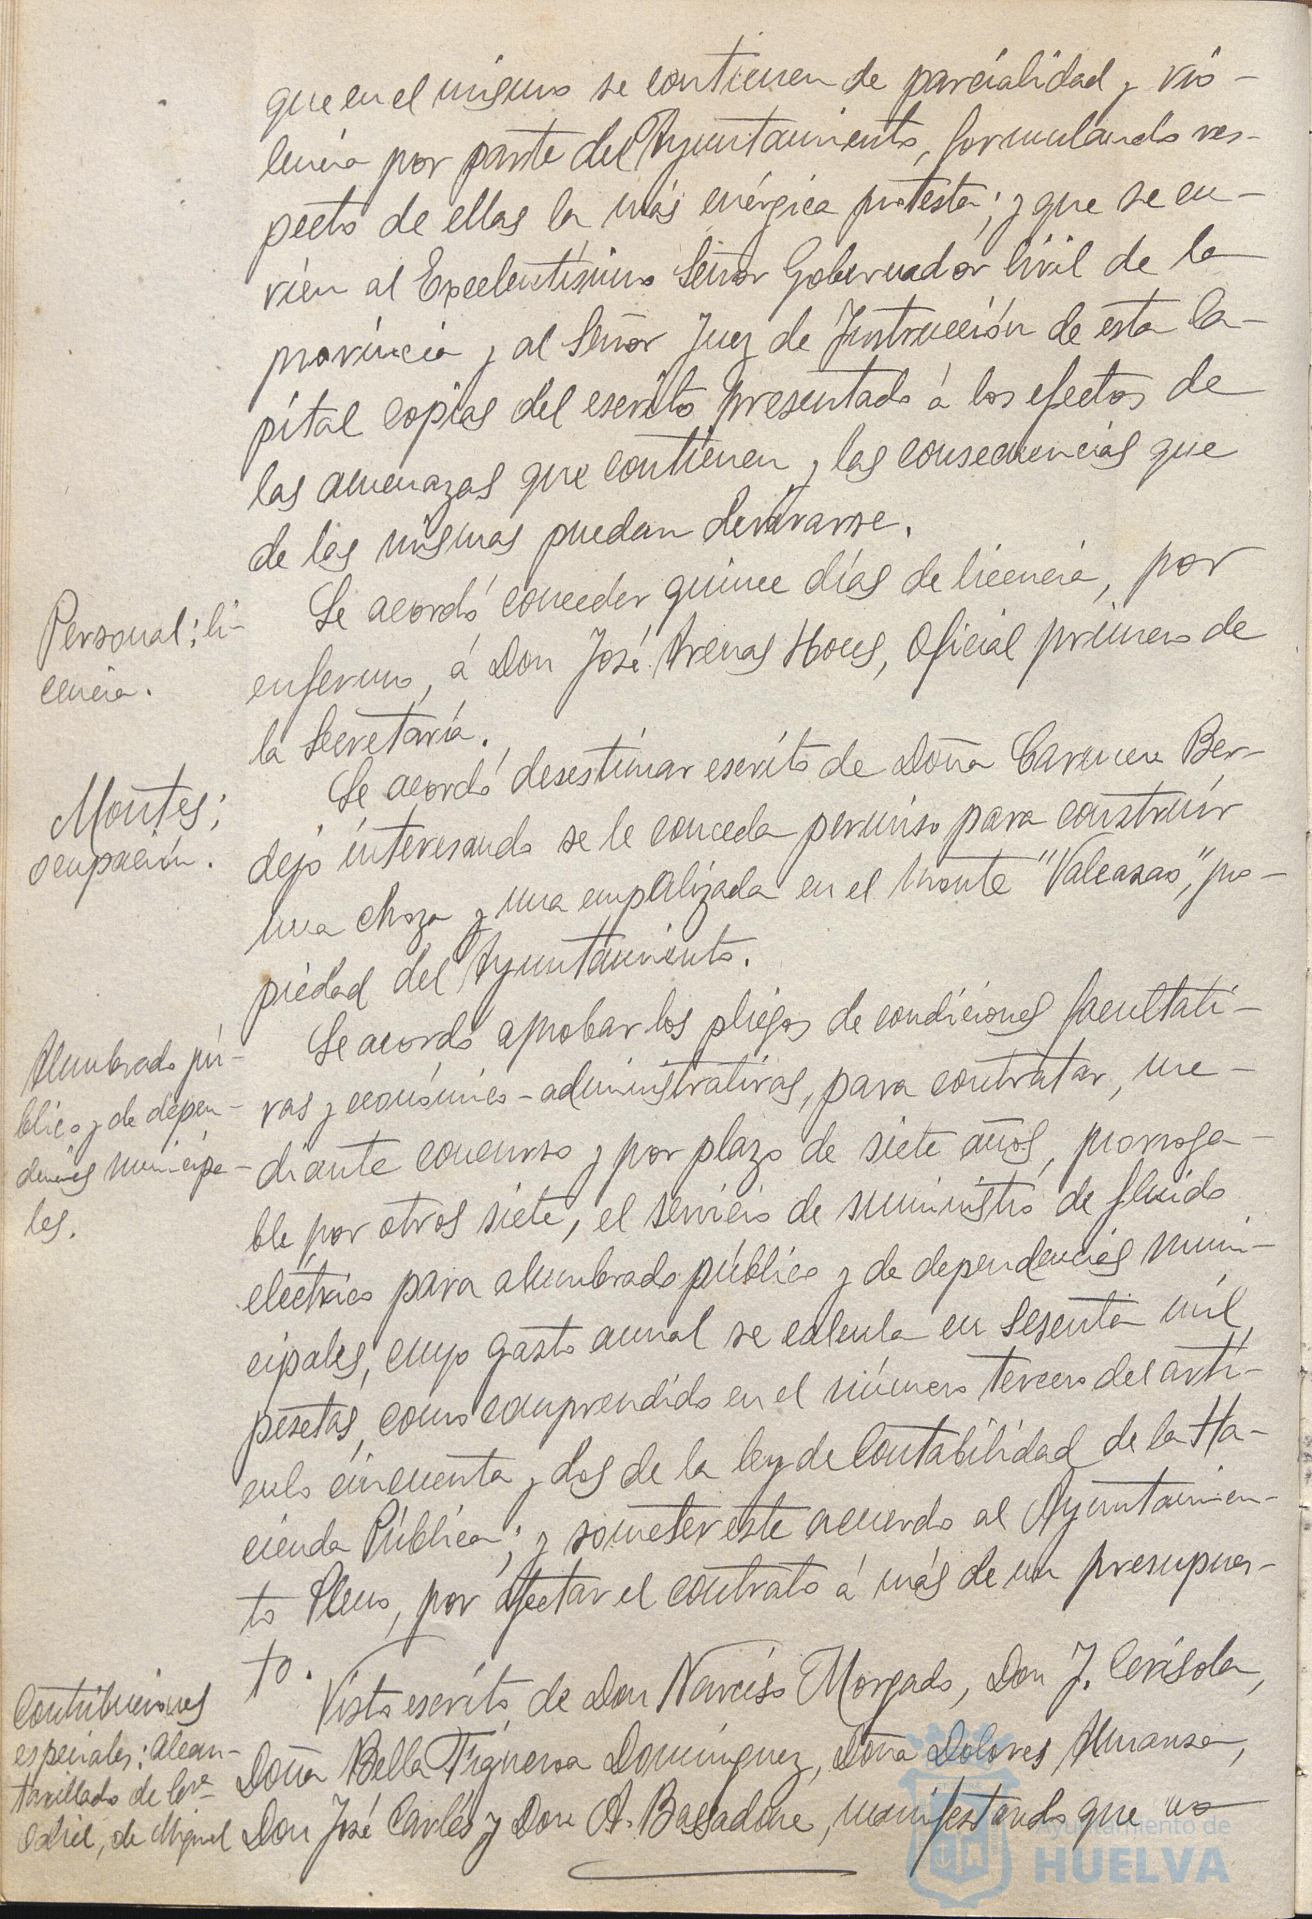 que en el mismo se contienen de parcialidad y vio-
lencia por parte del Ayuntamiento, formulando res-
pecto de ellas la más enérgica protesta; y que se en-
vien al Excelentísimo Señor Gobernador Civil de la
provincia y al Señor Juez de Instrucción de esta Ca-
pital copias del escrito presentado á los efectos de
las amenazas que contienen y las consecuencias que
de las mismas puedan derivarse.
Personal; li-
cencia.
Se acordó conceder quince días de licencia, por
enfermo, á Don José Arenas Hous, Oficial primero de
la Secretaría.
Montes;
ocupación.
Se acordó desestimar escrito de Doña Carmen Ber-
dejo interesando se le conceda permiso para construir
una choza y una empalizada en el monte "Valcasao", pro-
piedad del Ayuntamiento.
Alumbrado pú-
blico y de depen-
dencias municipa-
les.
Se acordó aprobar los pliegos de condiciones facultati-
vas y económico-administrativas, para contratar, me-
diante concurso y por plazo de siete años, prorroga-
ble por otros siete, el servicio de suministro de fluido
eléctrico para alumbrado público y de dependencias muni-
cipales, cuyo gasto anual se calcula en sesenta mil
pesetas, como comprendido en el número tercero del artí-
culo cincuenta y dos de la ley de Contabilidad de la Ha-
cienda Pública; y someter este acuerdo al Ayuntamien-
to Pleno, por afectar el contrato á más de un presupues-
to.
Contribuciones
especiales: alcan-
tarillado de los
Odiel, de Miguel
Visto escrito de Don Narciso Morgado, Don J. Cerisola,
Doña Bella Figueroa Domínguez, Doña Dolores Almansa,
Don José Carlés y Don A. Bassadone, manifestando que no
Ayuntamiento de
HUELVA